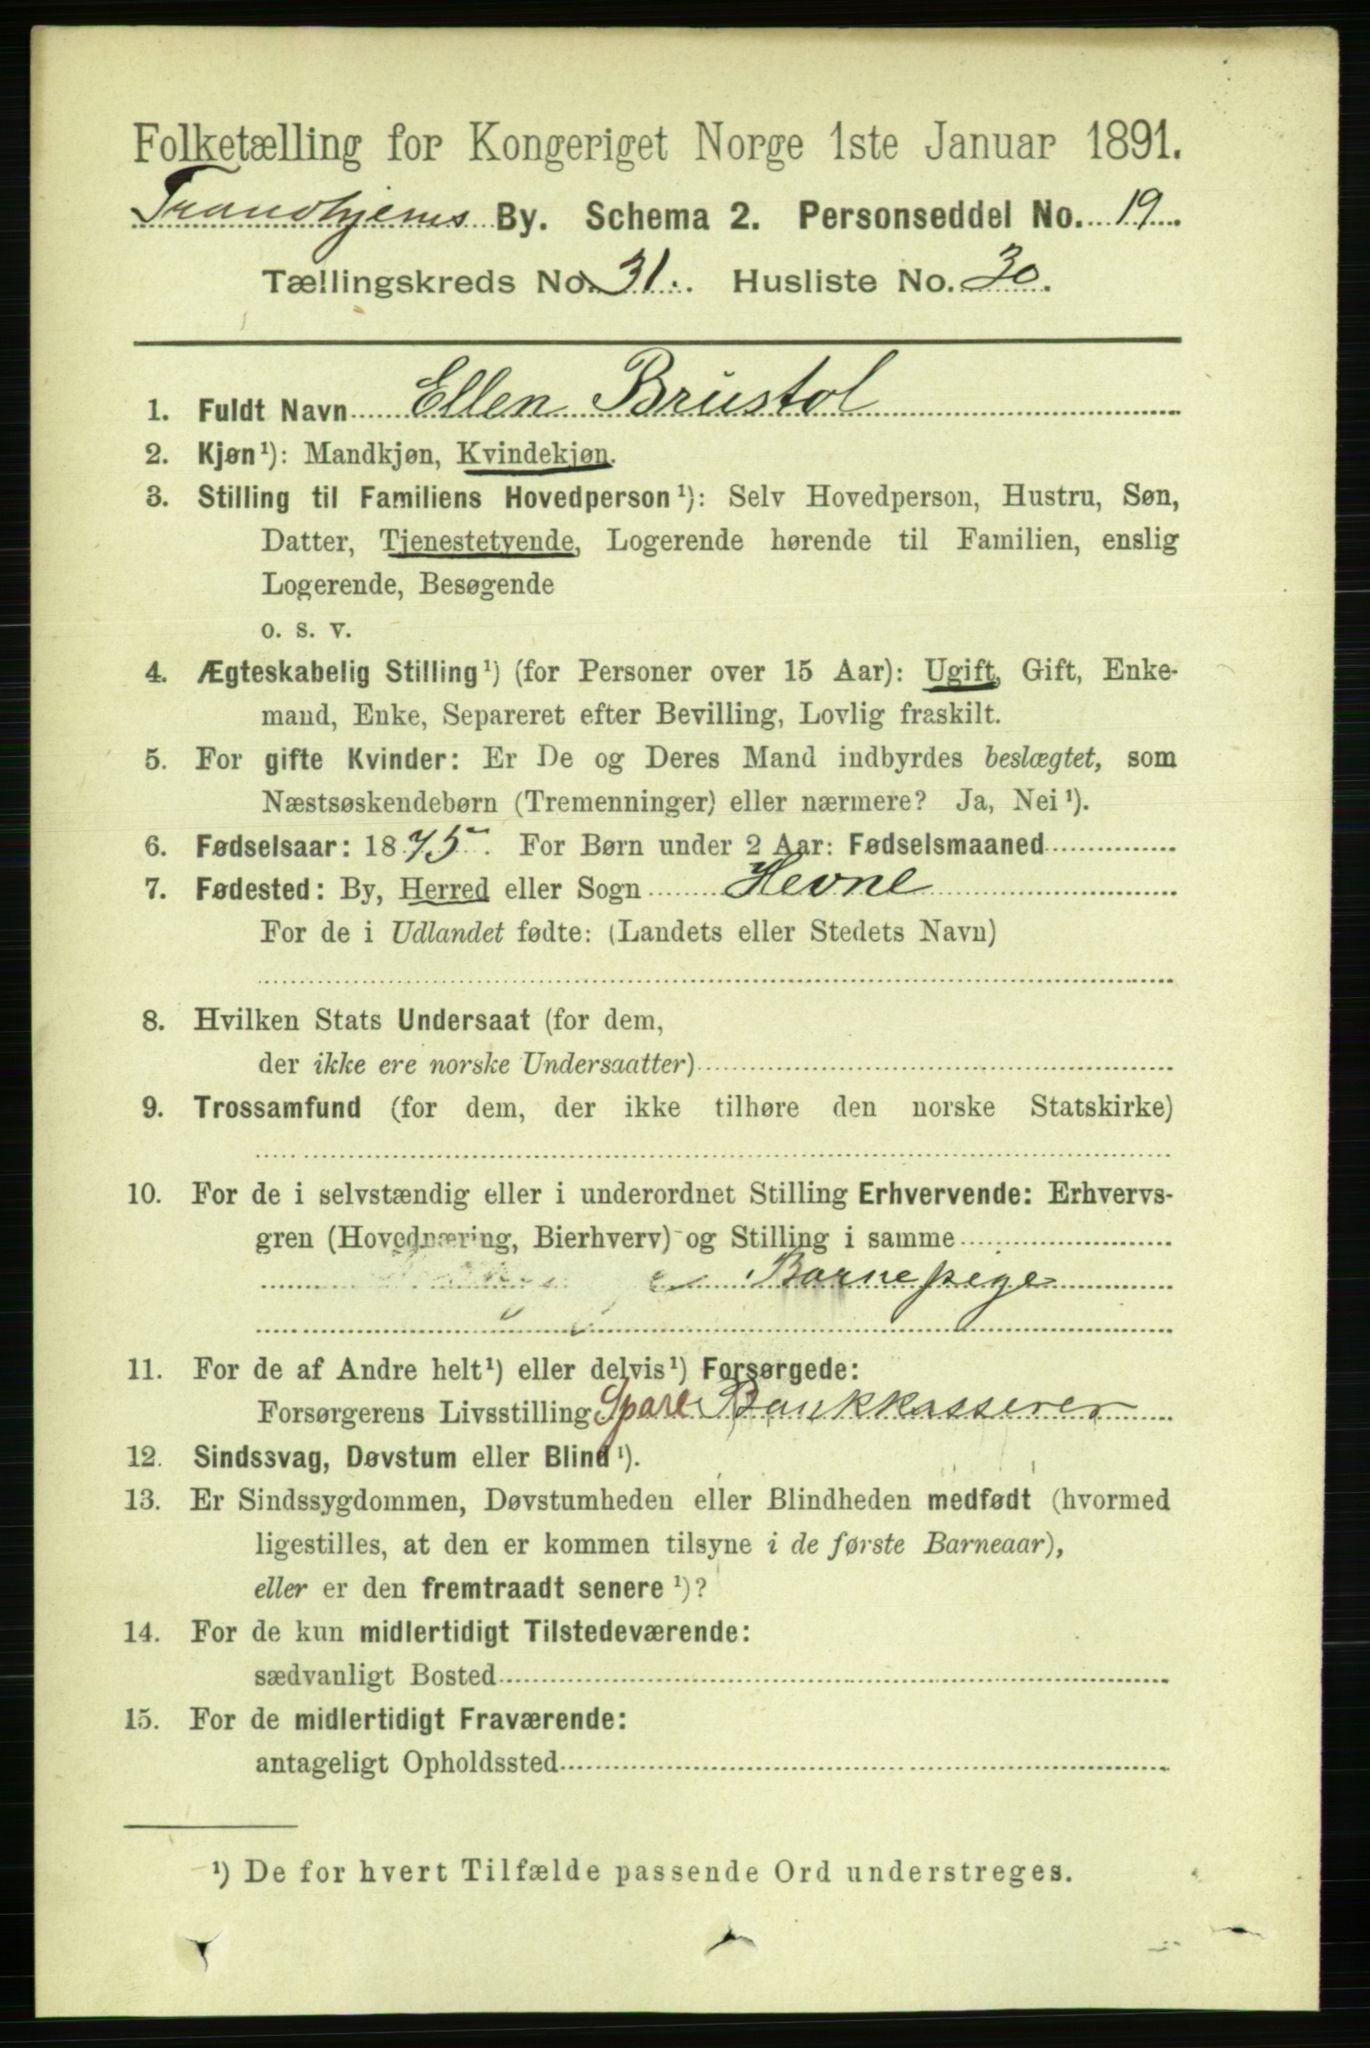 Folketælling for Kongeriget Norge 1ste Januar 1891.
Trondhjems By. Schema 2. Personseddel No. 19.
Tællingskreds No. 31. Husliste No. 30.
1. Fuldt Navn Ellen Brustol
2. Kjøn¹): Mandkjøn, Kvindekjøn.
3. Stilling til Familiens Hovedperson¹): Selv Hovedperson, Hustru, Søn,
Datter, Tjenestetyende, Logerende hørende til Familien, enslig
Logerende, Besøgende
o. s. v.
4. Ægteskabelig Stilling¹) (for Personer over 15 Aar): Ugift, Gift, Enke-
mand, Enke, Separeret efter Bevilling, Lovlig fraskilt.
5. For gifte Kvinder: Er De og Deres Mand indbyrdes beslægtet, som
Næstsøskendebørn (Tremenninger) eller nærmere? Ja, Nei¹).
6. Fødselsaar: 1875. For Børn under 2 Aar: Fødselsmaaned
7. Fødested: By, Herred eller Sogn Hevne
For de i Udlandet fødte: (Landets eller Stedets Navn)
8. Hvilken Stats Undersaat (for dem,
der ikke ere norske Undersaatter)
9. Trossamfund (for dem, der ikke tilhøre den norske Statskirke)
10. For de i selvstændig eller i underordnet Stilling Erhvervende: Erhvervs-
gren (Hovednæring, Bierhverv) og Stilling i samme
Barnepige
11. For de af Andre helt¹) eller delvis¹) Forsørgede:
Forsørgerens Livsstilling Spare Bankkasserer
12. Sindssvag, Døvstum eller Blind¹).
13. Er Sindssygdommen, Døvstumheden eller Blindheden medfødt (hvormed
ligestilles, at den er kommen tilsyne i de første Barneaar),
eller er den fremtraadt senere¹)?
14. For de kun midlertidigt Tilstedeværende:
sædvanligt Bosted
15. For de midlertidigt Fraværende:
antageligt Opholdssted
¹) De for hvert Tilfælde passende Ord understreges.